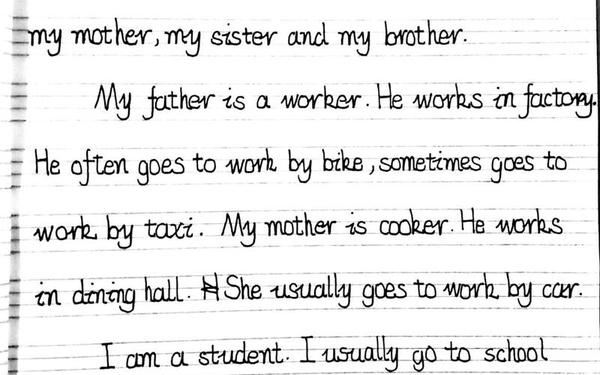 my mother, my sister and my brother.
My father is a worker. He works in factory.
He often goes to work by bike, sometimes goes to
work by taxi. My mother is cooker. He works
in dining hall. She usually goes to work by car.
I am a student. I usually go to school